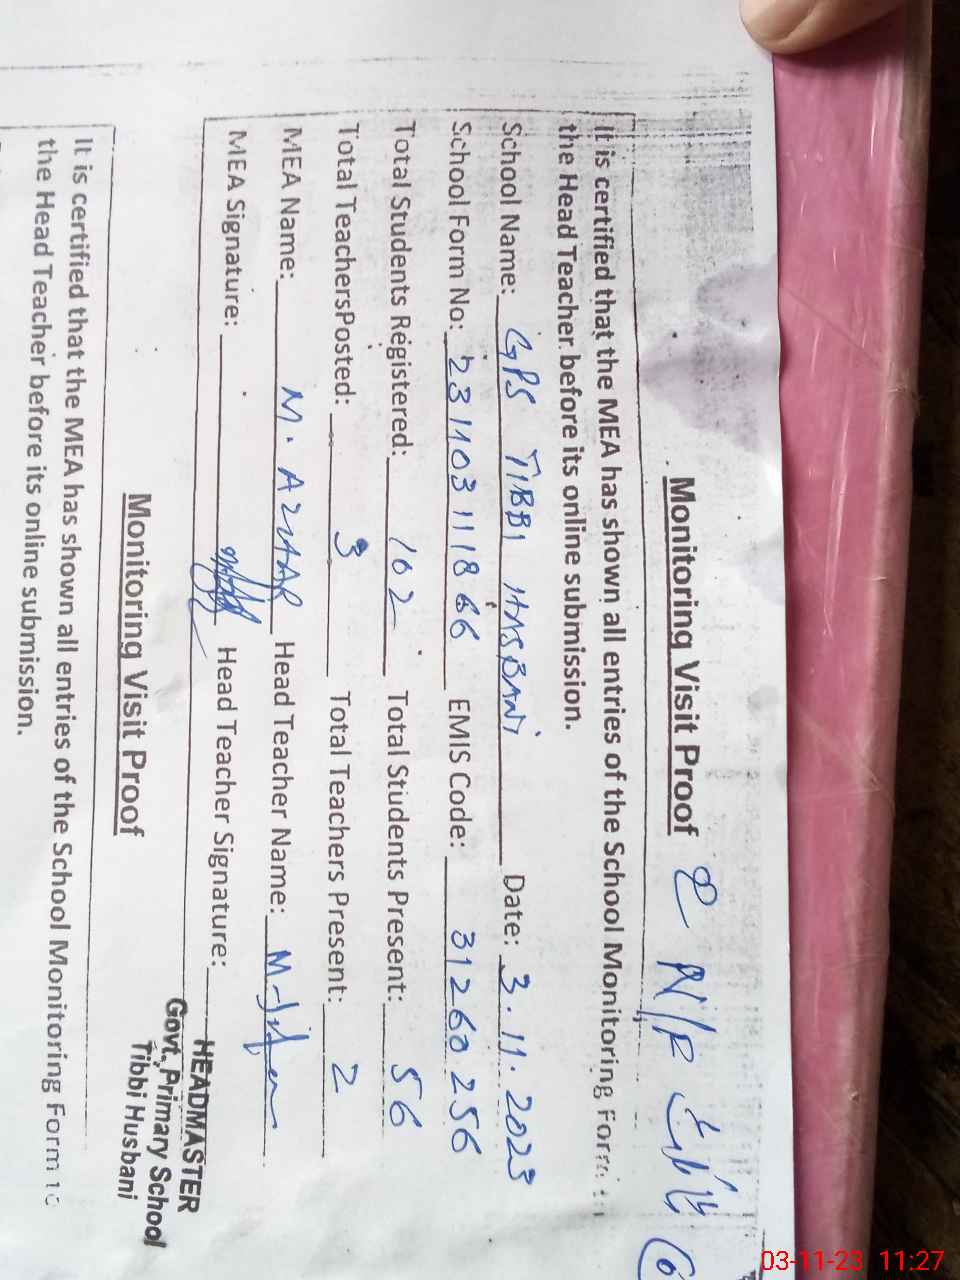 Monitoring Visit Proof
It is certified that the MEA has shown all entries of the School Monitoring Form to
the Head Teacher before its online submission.
School Name: GPS TIBBI HASBANI Date: 3.11.2023
School Form No: 231103111866 EMIS Code: 31260256
Total Students Registered: 102 Total Students Present: 56
Total TeachersPosted: 3 Total Teachers Present: 2
MEA Name: M. AZHAR Head Teacher Name:
MEA Signature: Head Teacher Signature:
HEADMASTER
Govt. Primary School
Tibbi Husbani
Monitoring Visit Proof
It is certified that the MEA has shown all entries of the School Monitoring Form to
the Head Teacher before its online submission.
03-11-23 11:27